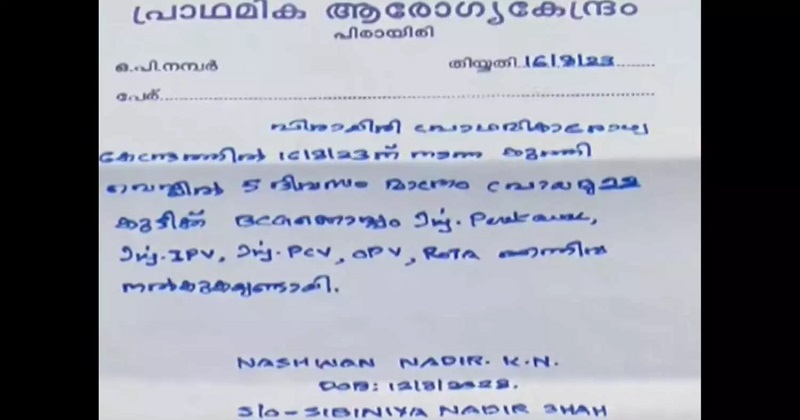 പ്രാഥമിക ആരോഗ്യകേന്ദ്രം
പിരായിരി
ഒ.പി.നമ്പർ തിയ്യതി 16/8/23
പേര്
പിരായിരി പ്രാഥമികാരോഗ്യ
കേന്ദ്രത്തിൽ 16/8/23 ന് നടന്ന കുത്തി
വെപ്പിൽ 5 ദിവസം മാത്രം പ്രായമുള്ള
കുട്ടിക്ക് Inj. Pentavac,
Inj. IPV, Inj. PCV, OPV, ROTA എന്നിവ
നൽകുകയുണ്ടായി.
NASHWAN NADIR. K.N.
DOB: 12/8/2023.
S/o - SIBINIYA NADIR SHAH